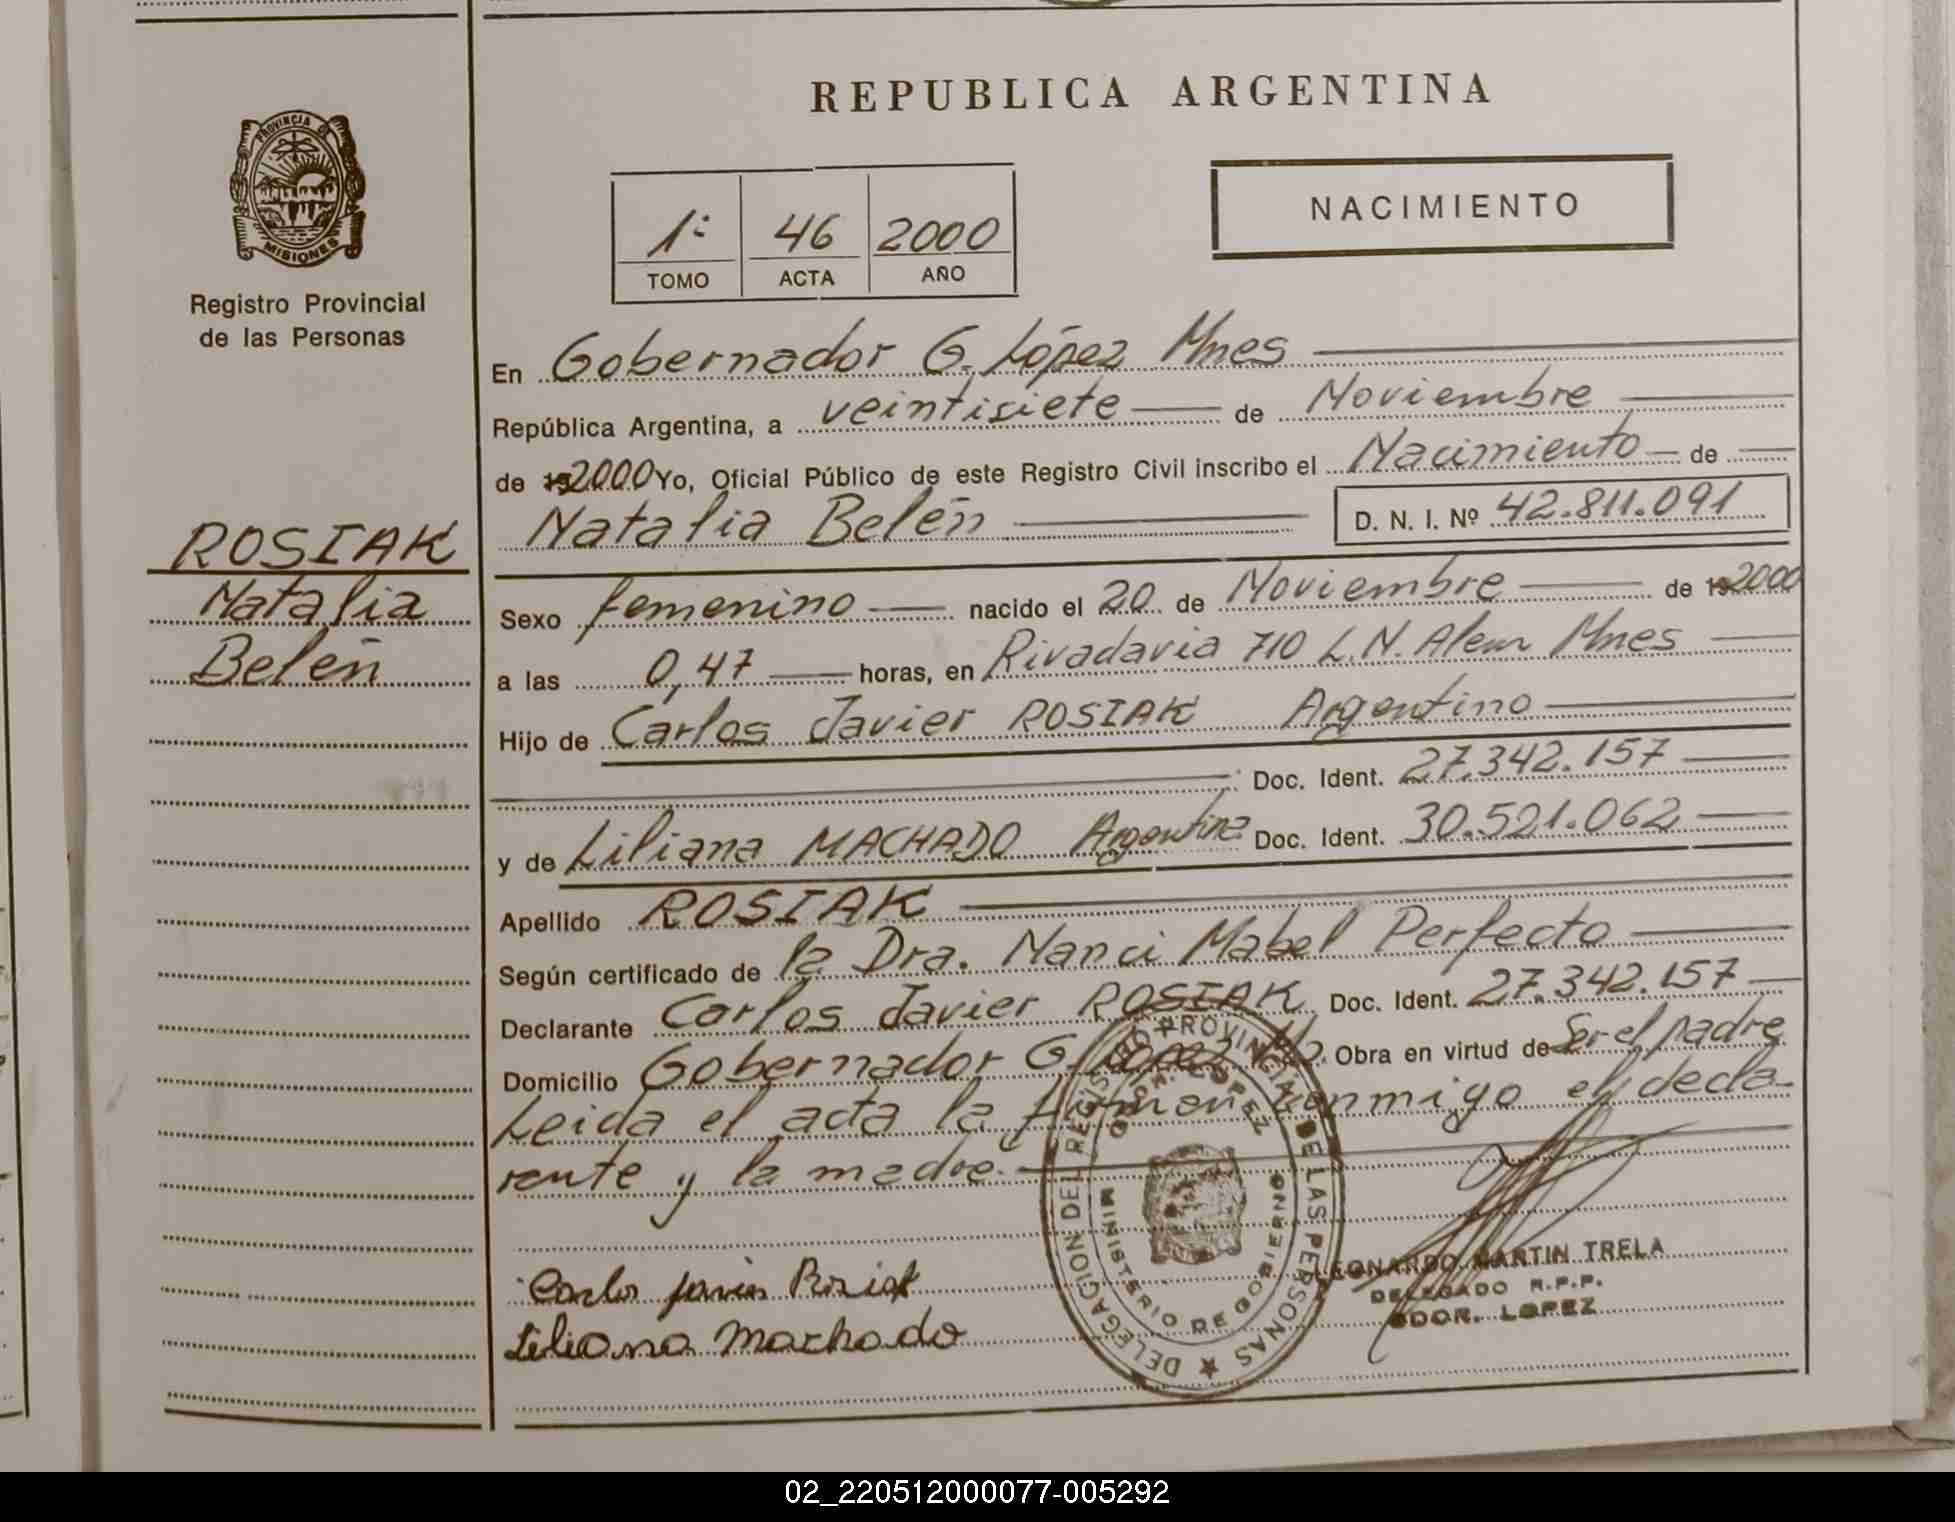 REPUBLICA ARGENTINA
PROVINCIA DE
MISIONES
Registro Provincial
de las Personas
1º 46 2000
TOMO ACTA AÑO
NACIMIENTO
ROSIAK
Natalia
Belén
En Gobernador G. López Mnes
República Argentina, a veintisiete de Noviembre
de 192000 Yo, Oficial Público de este Registro Civil inscribo el Nacimiento de
Natalia Belén D. N. I. Nº 42.811.091
Sexo femenino nacido el 20 de Noviembre de 192000
a las 0,47 horas, en Rivadavia 710 L.N. Alem Mnes
Hijo de Carlos Javier ROSIAK Argentino
Doc. Ident. 27.342.157
y de Liliana MACHADO Argentina Doc. Ident. 30.521.062
Apellido ROSIAK
Según certificado de la Dra. Nanci Mabel Perfecto
Declarante Carlos Javier ROSIAK Doc. Ident. 27.342.157
Domicilio Gobernador G. López Obra en virtud de Ser el padre
Leida el acta la firman conmigo el decla-
rante y la madre.
Carlos Javier Rosiak
Liliana Machado
DELEGACION DEL REGISTRO PROVINCIAL DE LAS PERSONAS
GDOR. LOPEZ
MINISTERIO DE GOBIERNO
LEONARDO MARTIN TRELA
DELEGADO R.P.P.
GDOR. LOPEZ
02_220512000077-005292